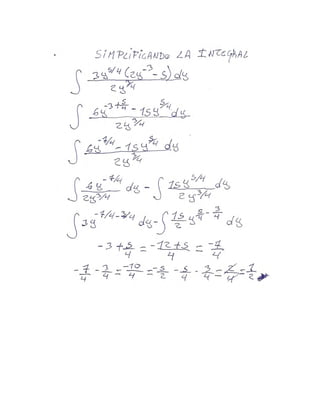 SIMPLIFICANDO LA INTEGRAL
∫ 3y^5/4 (2y^-3 - 5) dy / 2y^3/4
∫ 6y^-3+5/4 - 15y^5/4 dy / 2y^3/4
∫ 6y^-7/4 - 15y^5/4 dy / 2y^3/4
∫ 6y^-7/4 / 2y^3/4 dy - ∫ 15y^5/4 / 2y^3/4 dy
∫ 3y^-7/4-3/4 dy - ∫ 15/2 y^5/4-3/4 dy
-3 + 5/4 = -12+5/4 = -7/4
-7/4 - 3/4 = -10/4 = -5/2 - 5/4 - 3/4 = 2/4 = 1/2